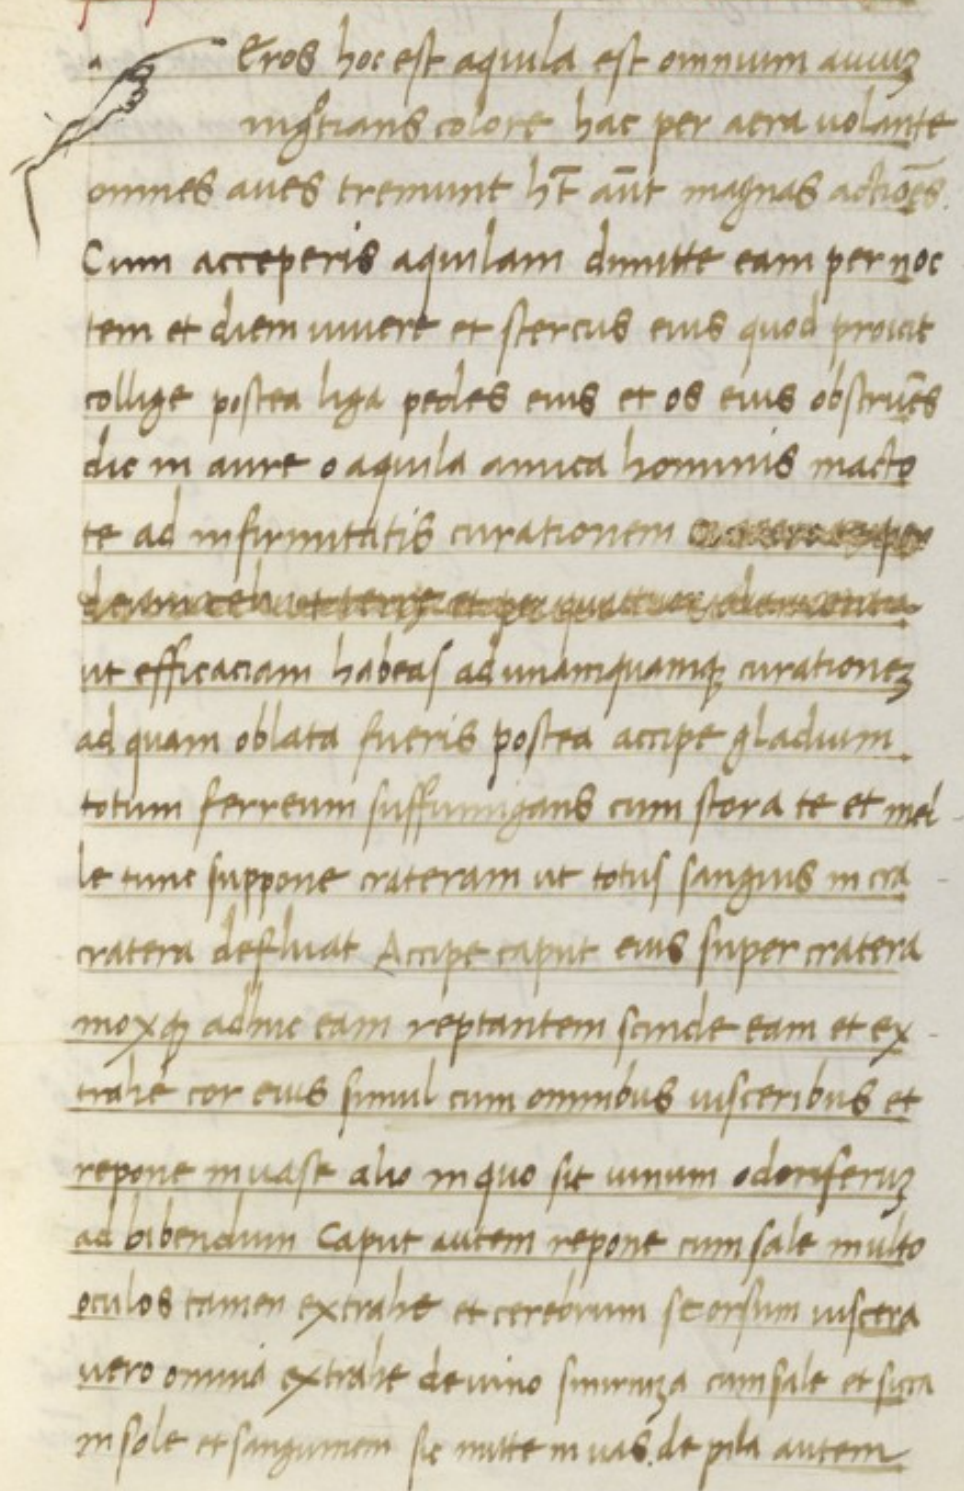 Eros hoc est aquila est omnium auiuʒ
colore hac per aera uolante
omnes aues tremunt ht̄ aūt magnas actiōes.
Cum acceperis aquilam dimitte eam per noc
tem et diem uiuere et stercus eius quod proicit
collige postea liga pedes eius et os eius obstruēs
dic in aure o aquila amica hominis macto
te ad infirmitatis curationem
ut efficaciam habeas ad unamquamqꝫ curationeʒ
ad quam oblata fueris postea accipe gladium
totum ferreum suffumigans cum stora te et mel
le tunc suppone crateram ut totus sanguis in cra
cratera defluat Accipe caput eius super cratera
moxqꝫ adhuc eam reptantem scinde eam et ex
trahe cor eius simul cum omnibus uisceribus et
repone in uase alio in quo sit uinum odoriferuʒ
ad bibendum Caput autem repone cum sale multo
oculos tamen extrahe et cerebrum seorsum uiscera
uero omnia extrahe de uino cum sale et sicca
in sole et sanguinem sic mitte in uas. de pila autem